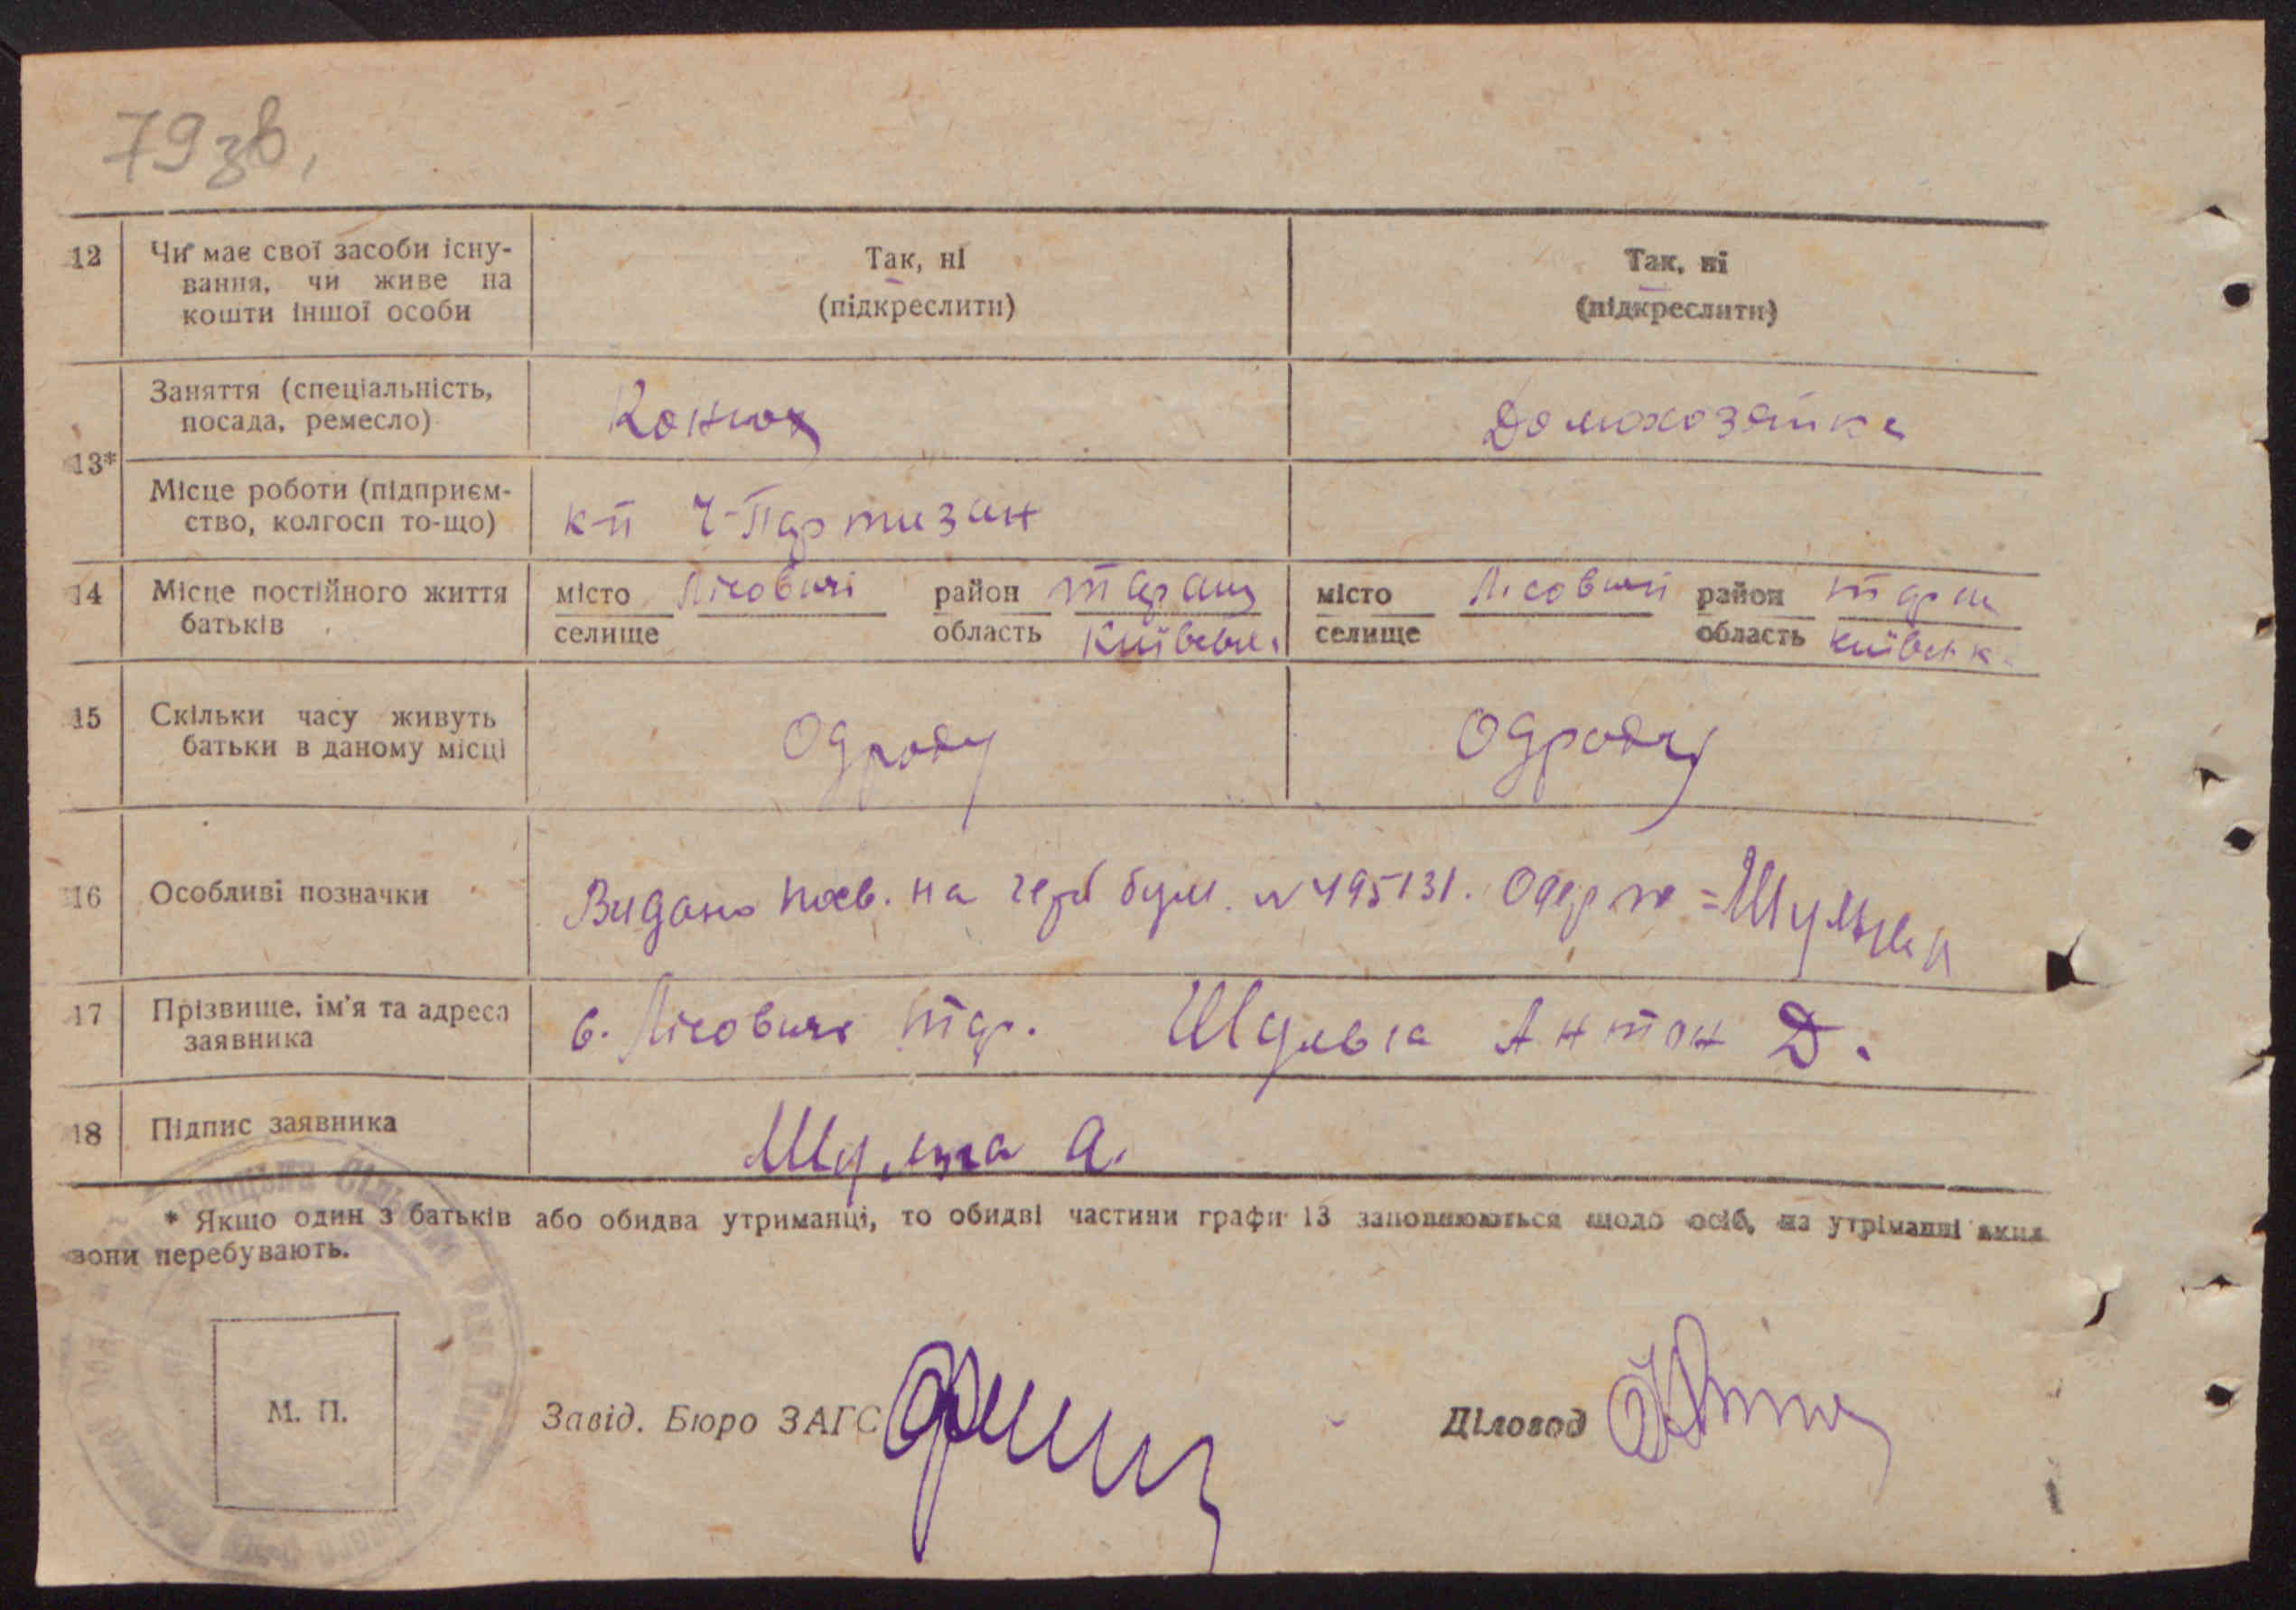 79 зв,
12 Чи має свої засоби існу-
вання, чи живе на
кошти іншої особи
Так, ні
(підкреслити)
Так, ні
(підкреслити)
13*
Заняття (спеціальність,
посада, ремесло)
Конюх
Домохозяйка
Місце роботи (підприєм-
ство, колгосп то-що)
к-п Ч-Партизан
14 Місце постійного життя
батьків
місто Лісовичі район Таращ
селище область Київськ.
місто Лісовичі район Таращ
селище область Київськ.
15 Скільки часу живуть
батьки в даному місці
Одроду
Одроду
16 Особливі позначки
Видано посв. на герб бум. N 495131. Одерж = Шульга
17 Прізвище, ім'я та адреса
заявника
с. Лісовичі Тар. Шульга Антон Д.
18 Підпис заявника
Шульга А.
* Якщо один з батьків або обидва утриманці, то обидві частини графи 13 заповнюються щодо осіб, на утріманні яких
вони перебувають.
М. П.
Завід. Бюро ЗАГС
Діловод